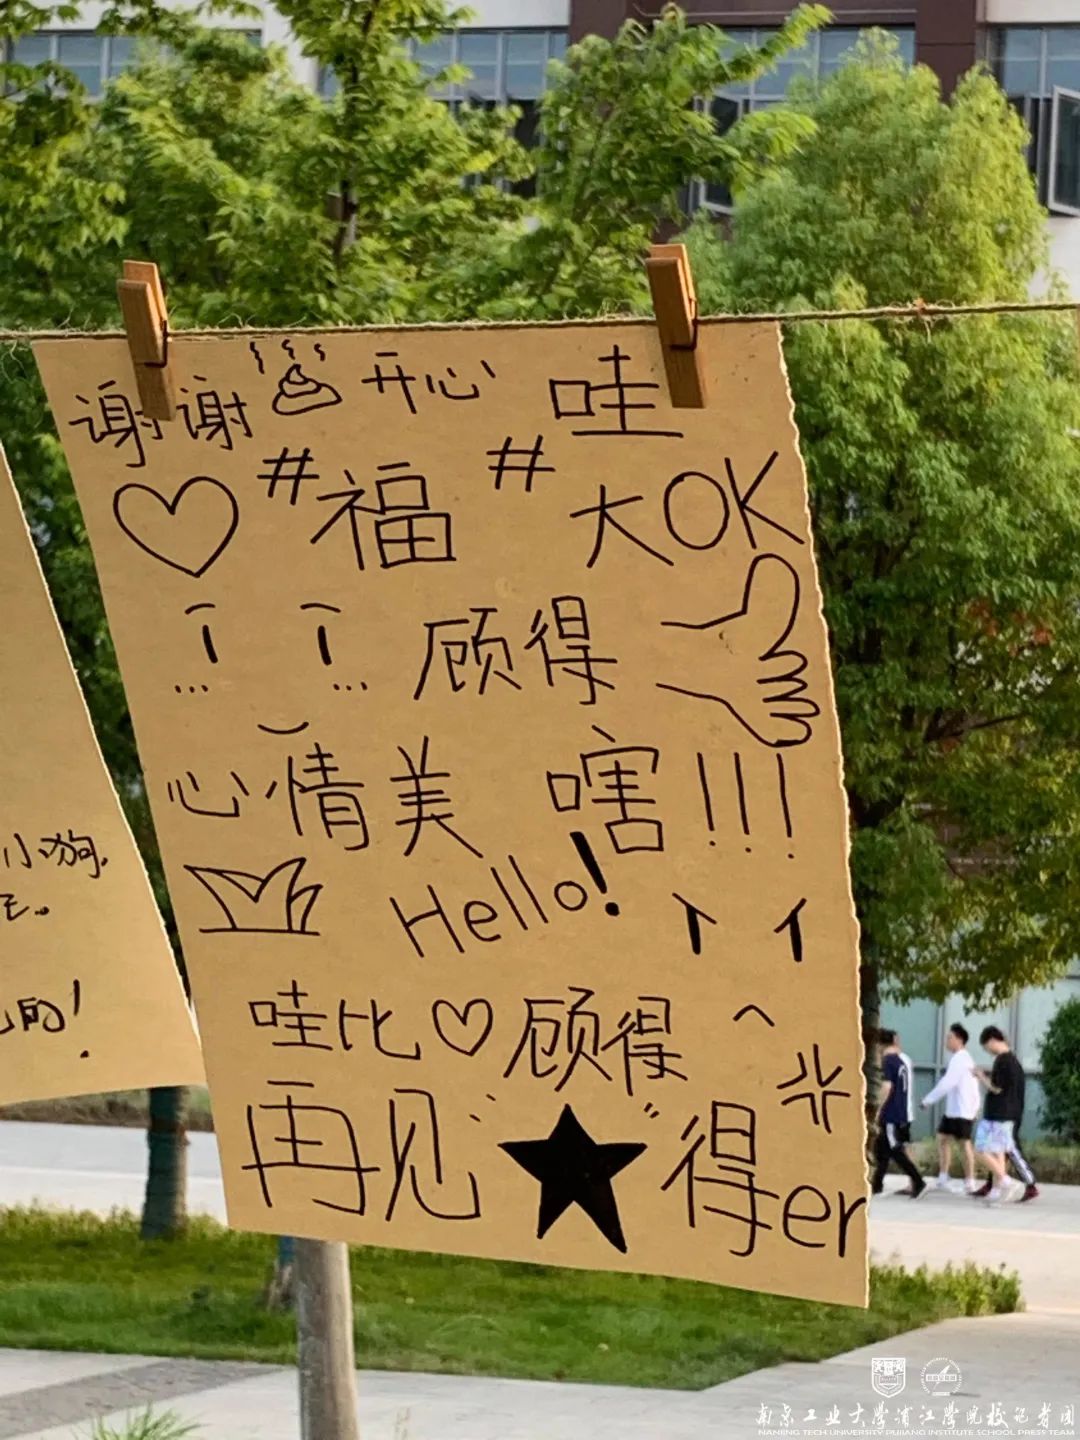 谢谢 开心 哇
# 福 # 大OK
顾得
心情美 嗐!!!
Hello!
哇比 顾得
再见 得er
小狗,
的!
南京工业大学浦江学院校记者团
NANJING TECH UNIVERSITY PUJIANG INSTITUTE SCHOOL PRESS TEAM